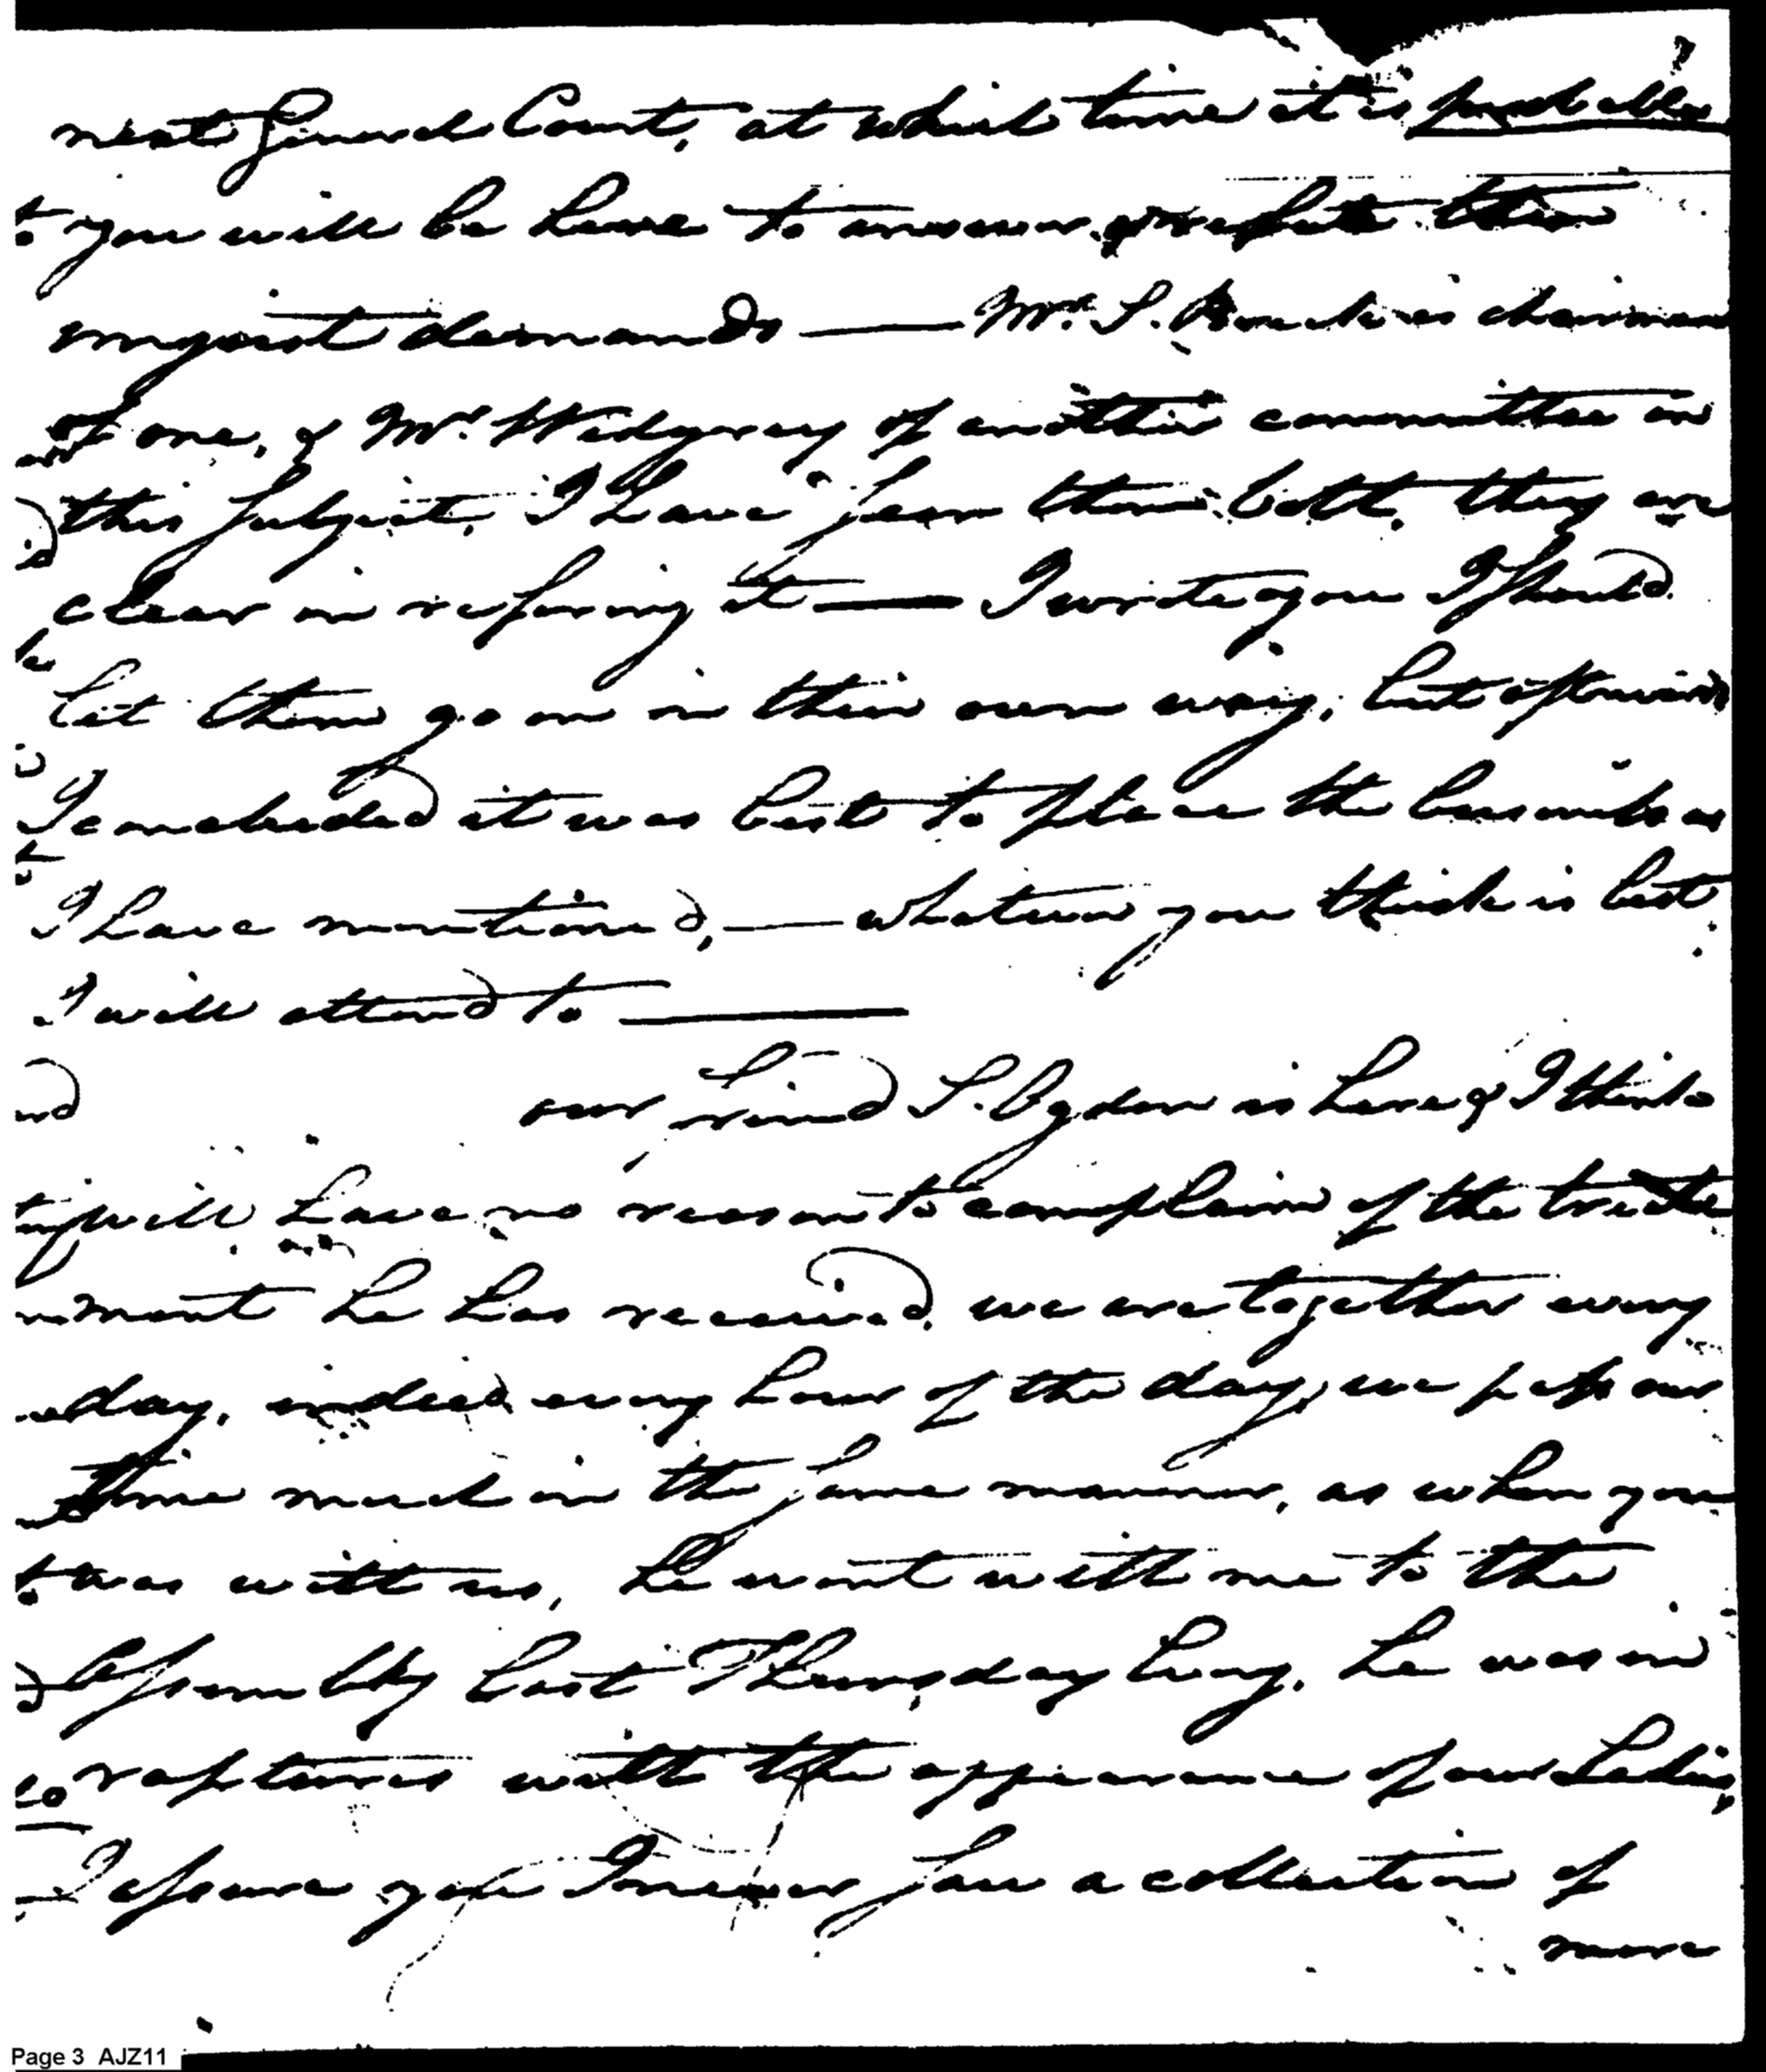 next Genel Court, at which time it is probable
you will be here to answer, or refute their
unjust demands — Mr. S. is chairman
of one, & Mr. Widgery of another committee on
this subject, I have seen them both, they are
clear in refering it — I wrote you I should
let them go on in their own way, but afterwards
I concluded it was best to place the business as
I have mentioned, — whatever you think is best
I will attend to —
our friend S. Ogden is here & I think
will have no reason to complain of the treate
ment he has received, we are together every
day, indeed every hour of the day, we pass our
time much in the same manner, as when you
was with us, he went with me to the
assembly last Thursday Eveng, he was in
raptures with the appearance of our Ladies,
I assure you I never saw a collection of
more
Page 3 AJZ11